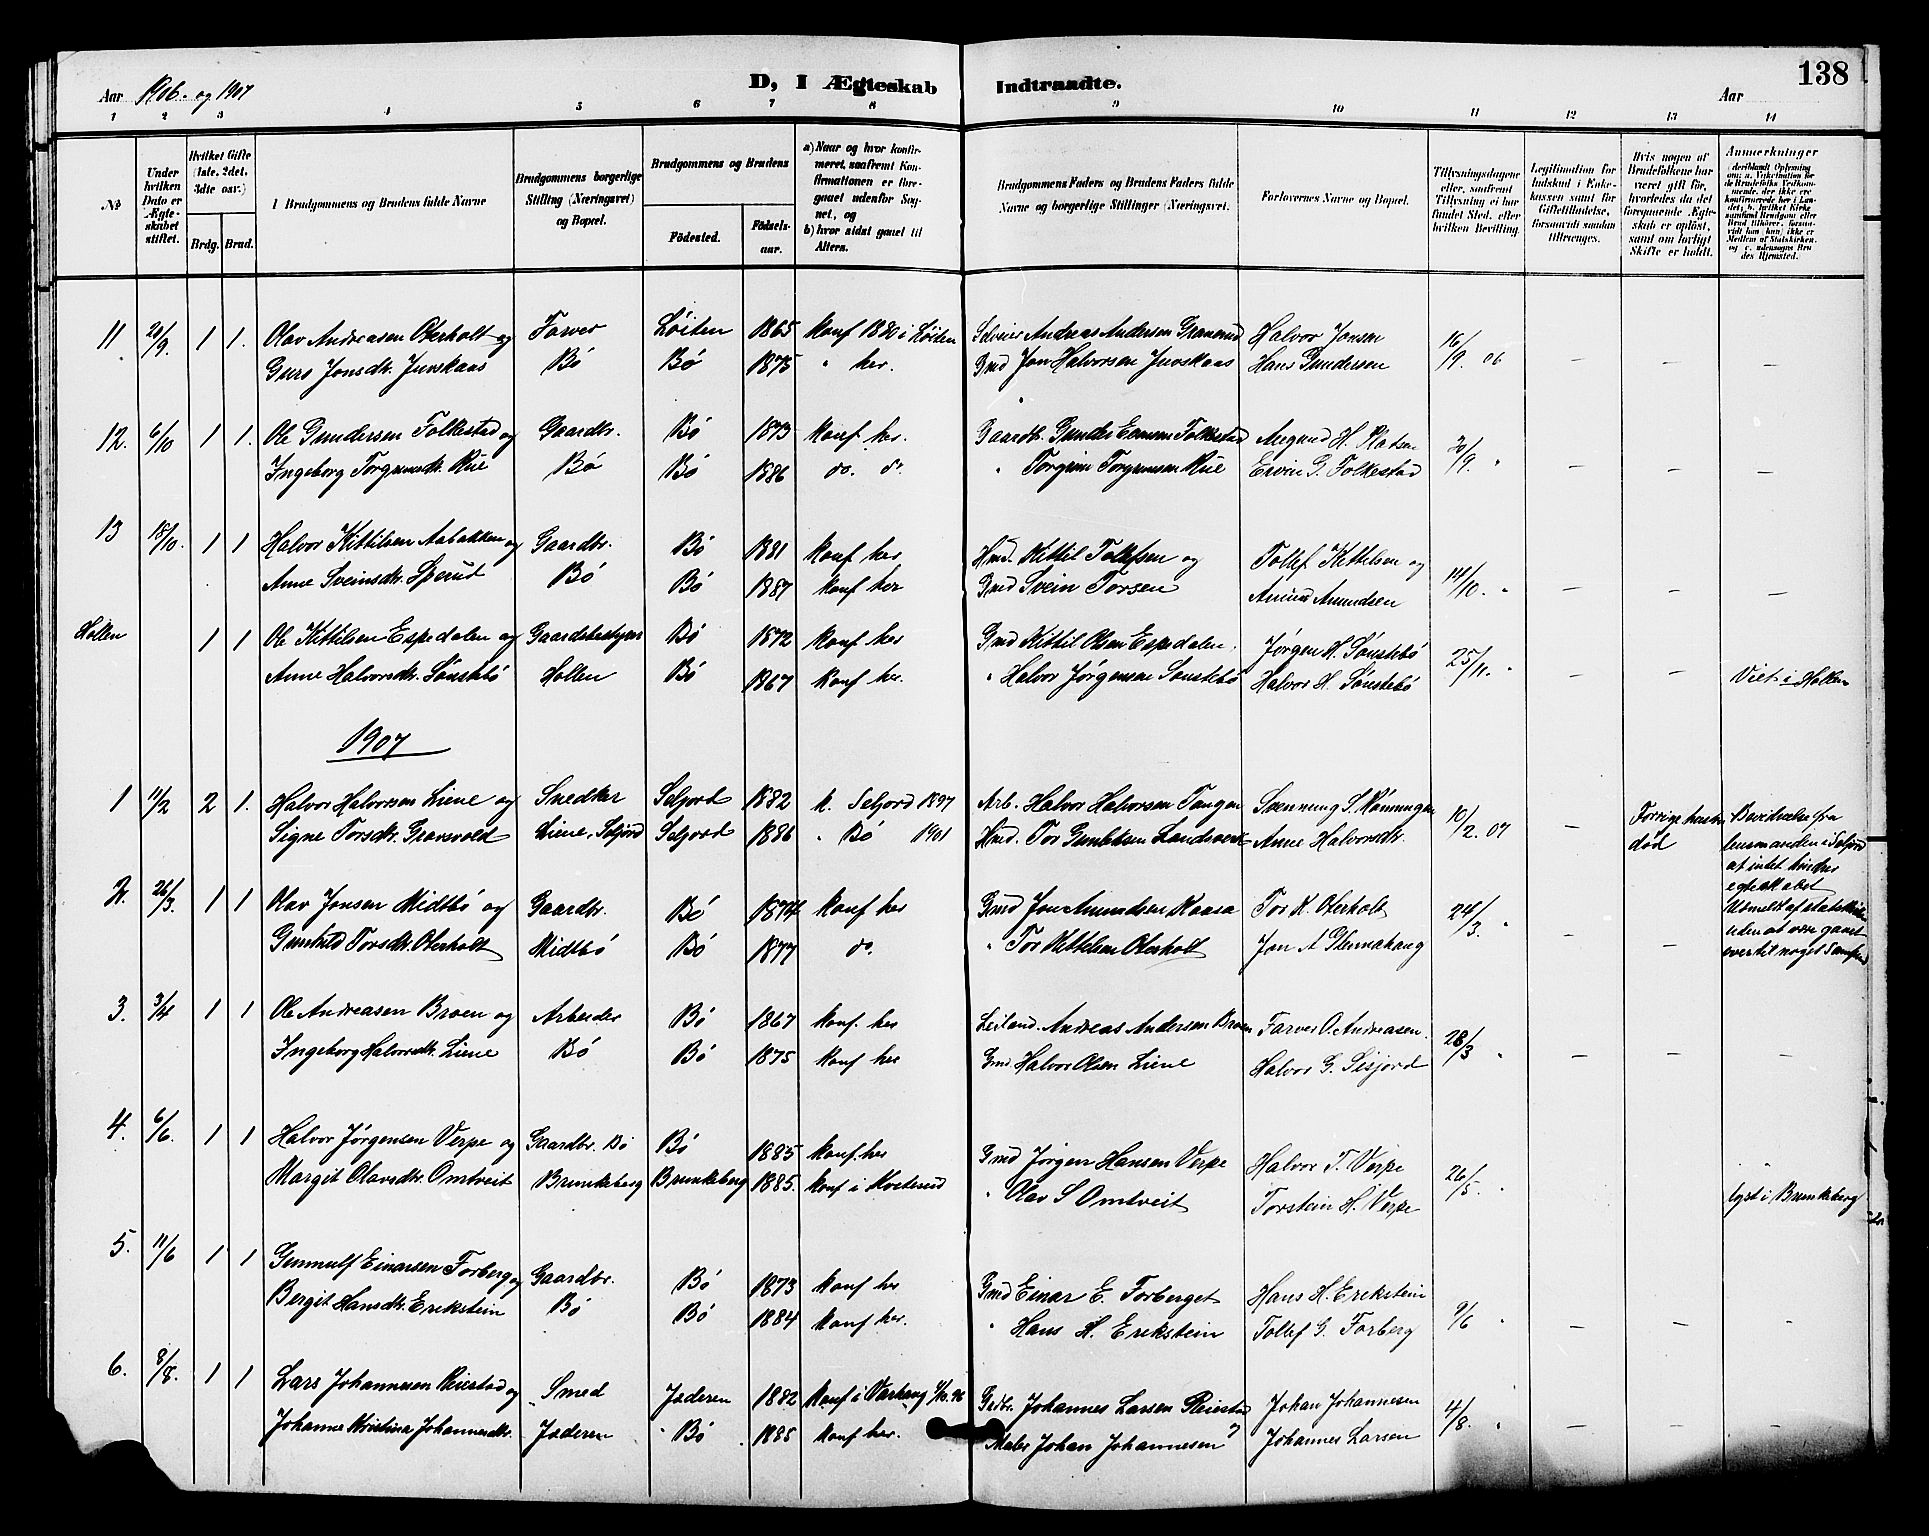 Aar 1906. og 1907
D, I Ægteskab Indtraadte.
Aar
138
1 2 3 4 5 6 7 8 9 10 11 12 13 14
№
Under hvilken Dato er Ægteskabet stiftet.
Hvilket Gifte (1ste, 2det, 3die osv.)
Brdg. Brud.
Brudgommens og Brudens fulde Navne
Brudgommens borgerlige Stilling (Næringsvei) og Bopæl.
Brudgommens og Brudens
Födested. Födsels-aar.
a) Naar og hvor konfirmeret, saafremt Konfirmationen er foregaaet udenfor Sognet, og
b) hvor sidst gaaet til Alters.
Brudgommens Faders og Brudens Faders fulde Navne og borgerlige Stillinger (Næringsvei.
Forlovernes Navne og Bopæl.
Tillysningsdagene eller, saafremt Tillysning ei har fundet Sted, efter hvilken Bevilling.
Legitimation for Indskud i Enkekassen samt for Giftetilladelse, forsaavidt saadan tiltrænges.
Hvis nogen af Brudefolkene har været gift før, hvorledes da det foregaaende Ægteskab er opløst, samt om lovligt Skifte er holdt.
Anmærkninger
11 20/9. 1 1. Olav Andreasen Oterholt og Farver Løiten 1865 konf 1880 i Løiten Selveier Andreas Andersen Granerud Halvor Jonsen 16/9. 06 — — —
Guro Jonsdtr. Juvskaas Bø Bø 1875 " her. Gmd Jon Halvorsen Juvskaas Hans Gundersen
12. 6/10 1 1. Ole Gundersen Folkestad og Gaardbr. Bø 1873 konf her. Gaardb. Gunder Folkestad H. 30/9. " — — —
Ingeborg Torgrimsdtr. Rue Bø Bø 1886 do. do. " Torgrim Torgrimsen Rue G. Folkestad
13 18/10. 1 1 Halvor Kittilsen Aabakken og Gaardbr. Bø 1881 konf her Hmd. Kittil Tollefsen og Tollef Kittilsen og 14/10. " — — —
Anne Sveinsdtr. Sperud Bø Bø 1887 konf her Gmd Svein Torsen Amund Amundsen
Hollen 1 1 Ole Kittilsen Espedalen og Gaardsbestyrer Bø 1872 konf her Gmd Kittil Olsen Espedalen. Jørgen H. Sønstebø 25/11. " — —
Anne Halvorsdtr. Sønstebø Hollen Bø 1867 konf her. " Halvor Jørgensen Sønstebø Halvor H. Sønstebø Viet i Hollen
1907
1 11/2 2 1. Halvor Halvorsen Liene og Snedker Seljord 1882 k. Seljord 1897 Arb. Halvor Halvorsen Tangen S. Rønningen 10/2. 07 — Forrige hustru Bevidnelse fra
Signe Torsdtr. Gravsvold Liene, Seljord Seljord 1886 " Bø 1901 Hmd. Tor Gunleksen Landsverk Anne Halvorsdtr. død lensmanden i Seljord
at intet hindrer
egteskabet
2. 26/3. 1 1 Olav Jonsen Midtbø og Gaardbr. Bø 1874 konf her Gmd Jon Amundsen Kaasa Tor K. Oterholt 24/3. " — — Utmeldt af statskirken
Gunhild Torsdtr. Oterholt Midtbø Bø 1877 do. " Tor Kittilsen Oterholt Jon A Glennehaug uden at være gaaet
over til noget Samfund
3. 3/4 1 1 Ole Andreasen Broen og Arbeider Bø 1867 konf. her Leiland. Andreas Andersen Broen Farver O. Andreasen. 28/3 " — — —
Ingeborg Halvorsdtr. Liene Bø Bø 1875 konf her Gmd. Halvor Olsen Liene Halvor G. Sisjord
4. 6/6. 1 1 Halvor Jørgensen Verpe og Gaardbr. Bø Bø 1885 konf. her Gmd Jørgen Hansen Verpe Halvor T. Verpe 26/5. "
Margit Olavsdtr. Omtveit Brunkeberg Brunkeberg 1885. konf i Kviteseid " Olav S Omtveit Torstein H. Verpe lyst i Brunkeberg
5. 11/6 1 1 Gunnulf Einarsen Forberg og Gaardbr. Bø 1873 konf her Gmd Einar E. Forberget Hans H. Erikstein 9/6 " — — —
Bergit Hansdtr. Erikstein Bø Bø 1884 konf her. " Hans H. Erikstein Tollef G. Forberg
6. 8/8. 1 1 Lars Johannesen Reiestad og Smed Jæderen 1882 konf i Varhaug Grdbr. Johannes Larsen Reiestad Johan Johannesen 4/8. " — — —
Johanne Kristina Johannesdtr. Jæderen Bø 1885 konf her. Maler Johan Johannesen Johannes Larsen